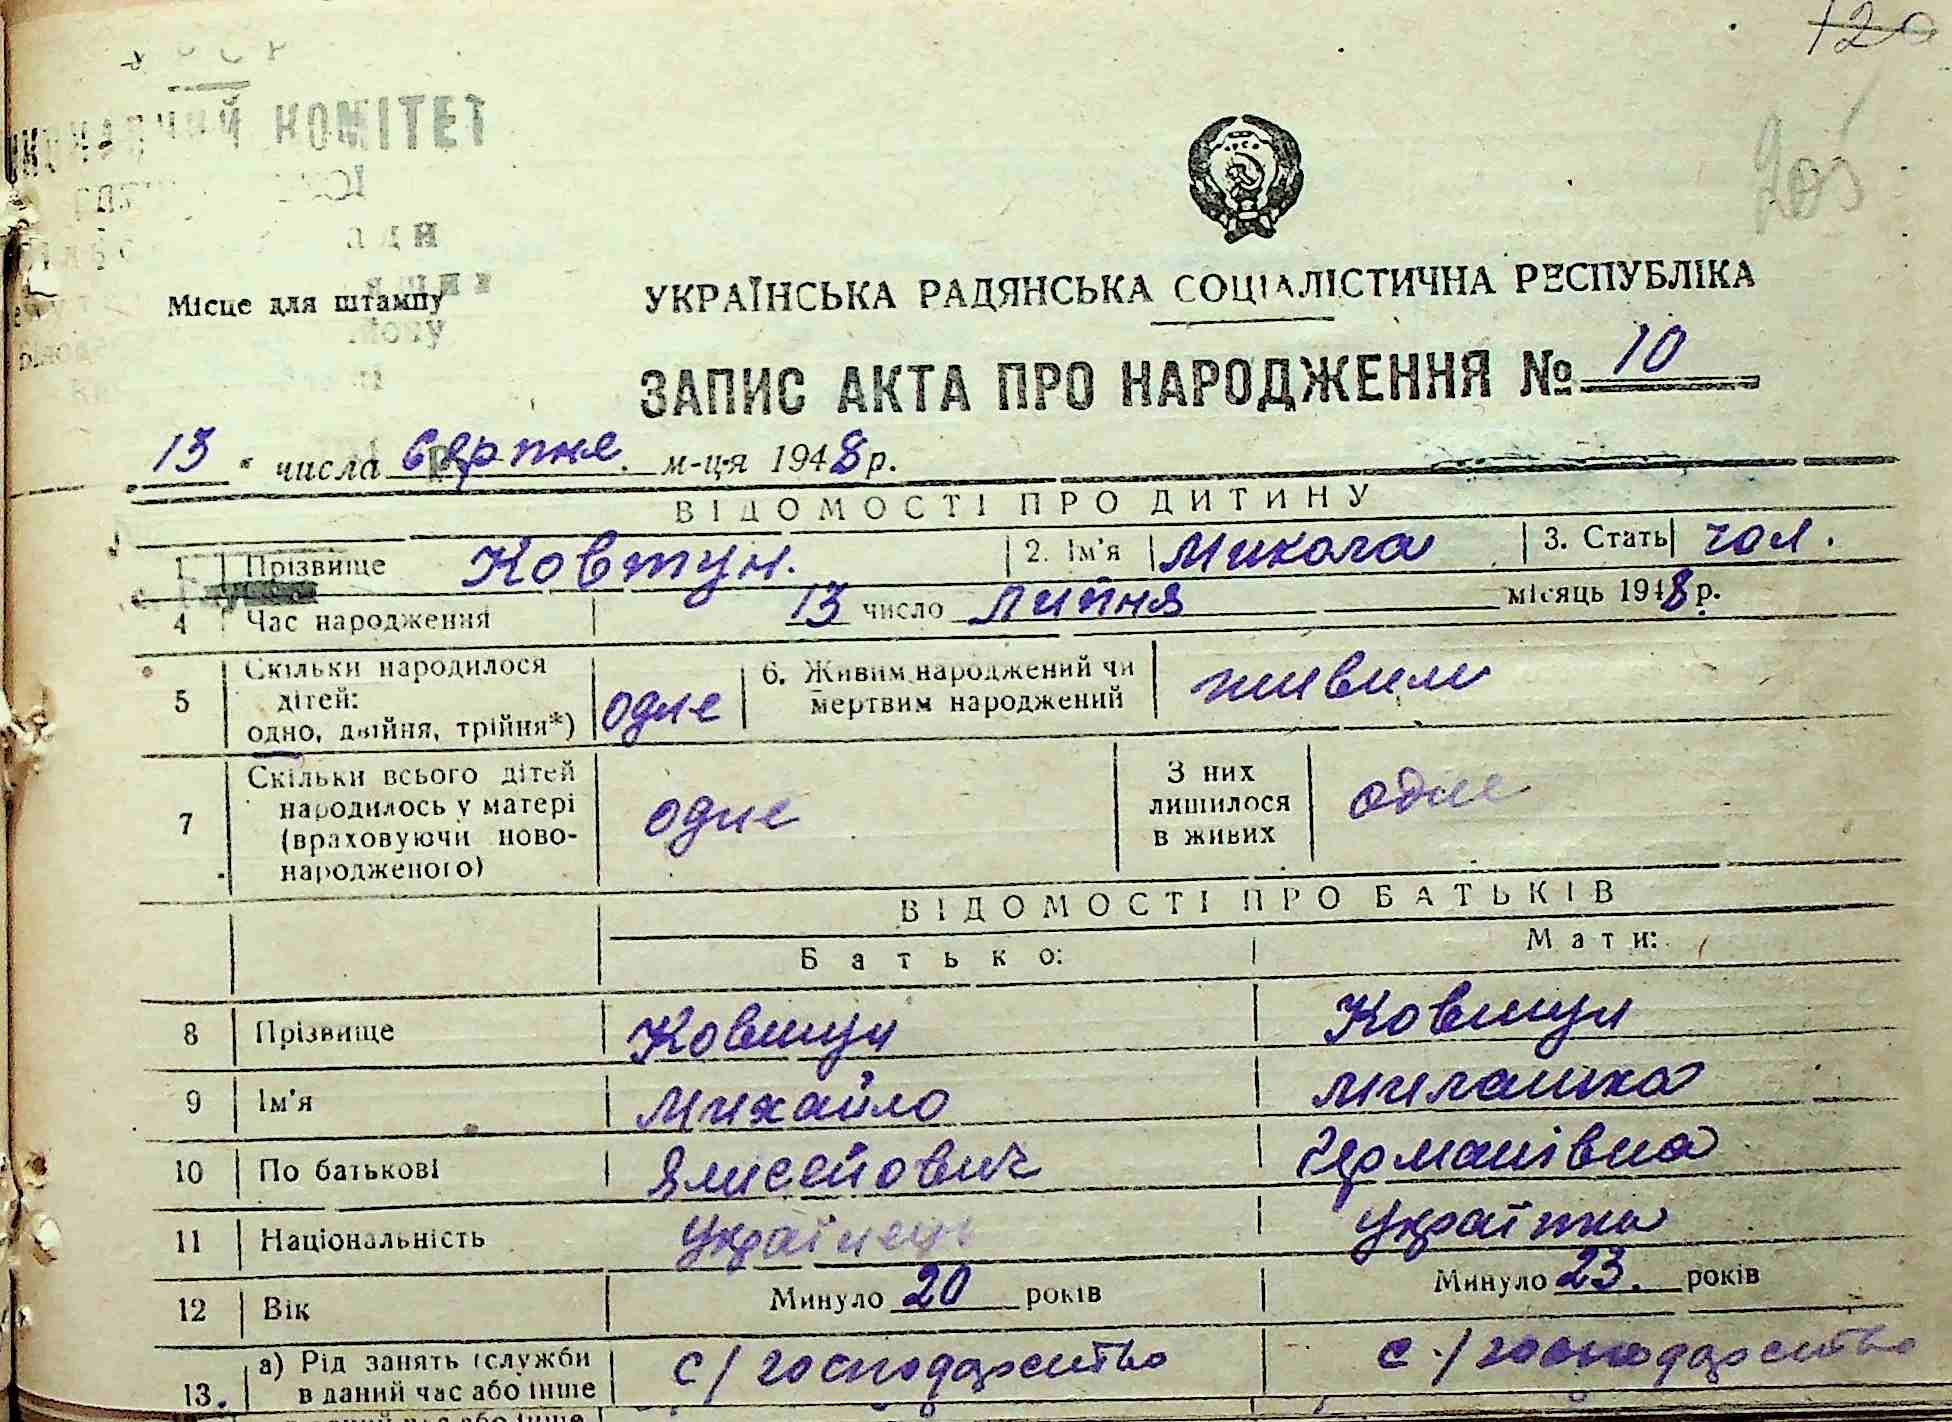 120
205
КОМІТЕТ
Місце для штампу
УКРАЇНСЬКА РАДЯНСЬКА СОЦІАЛІСТИЧНА РЕСПУБЛІКА
ЗАПИС АКТА ПРО НАРОДЖЕННЯ № 10
13 " числа серпне м-ця 1948 р.
ВІДОМОСТІ ПРО ДИТИНУ
1 Прізвище Ковтун. 2. Ім'я Микола 3. Стать чол.
4 Час народження 13 число липня місяць 1948 р.
5 Скільки народилося дітей: одно, двійня, трійня*) одне 6. Живим народжений чи мертвим народжений живим
7 Скільки всього дітей народилось у матері (враховуючи ново-народженого) одне З них лишилося в живих одне
ВІДОМОСТІ ПРО БАТЬКІВ
Батько: Мати:
8 Прізвище Ковтун Ковтун
9 Ім'я Михайло Милашка
10 По батькові Ялисейович Германівна
11 Національність Українець Українка
12 Вік Минуло 20 років Минуло 23. років
13. а) Рід занять (служби в даний час або інше с/господарство с./господарство